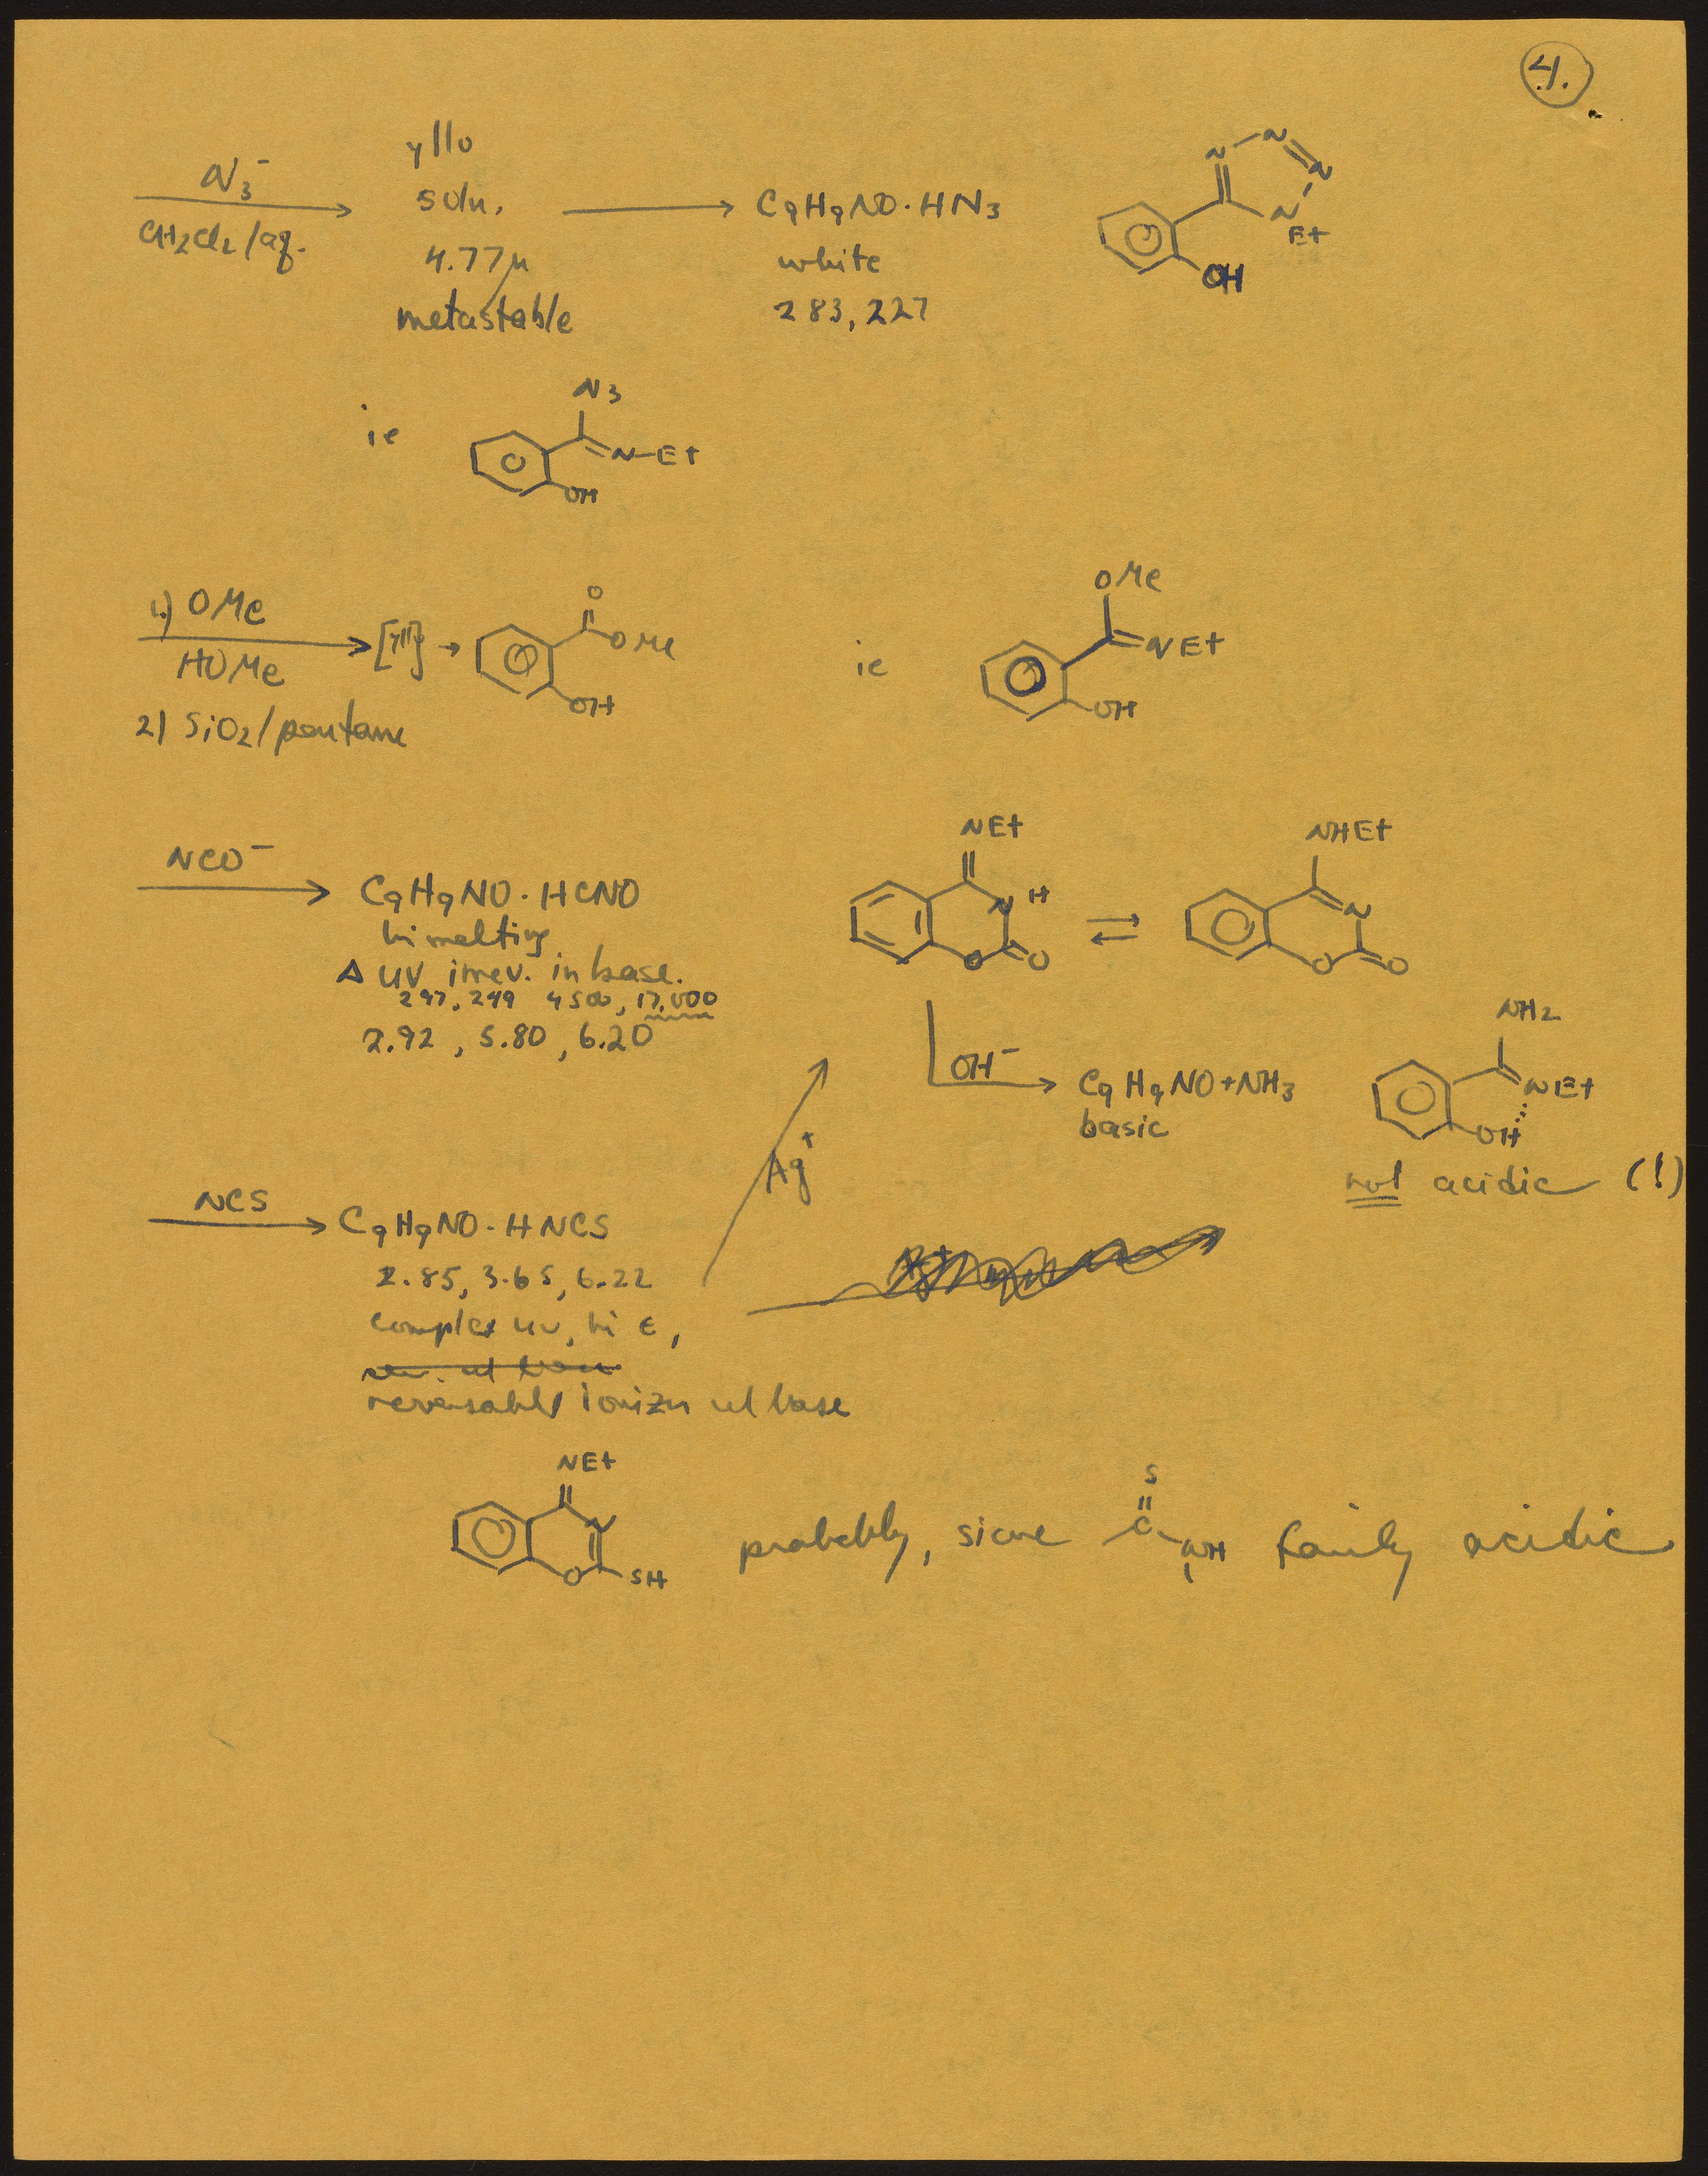 4.
N3-
CH2Cl2/aq.
yllo
soln.
4.77μ
metastable
C9H9NO·HN3
white
283, 227
N N N N Et
OH
ie
N3
N-Et
OH
1.) OMe
HOMe
2) SiO2/pentane
[yll]
O
OMe
OH
ie
OMe
NEt
OH
NCO-
C9H9NO·HCNO
hi melting
Δ UV irrev. in base.
297, 249 4500, 17,000
2.92, 5.80, 6.20
NEt
N H
O O
NHEt
N
O O
OH-
C9H9NO+NH3
basic
NH2
NEt
OH
not acidic (!)
Ag+
NCS
C9H9NO·HNCS
2.85, 3.65, 6.22
complex uv, hi ε,
reversable ionizn w/ base
NEt
N
O SH
probably, since
S
C
NH
fairly acidic.